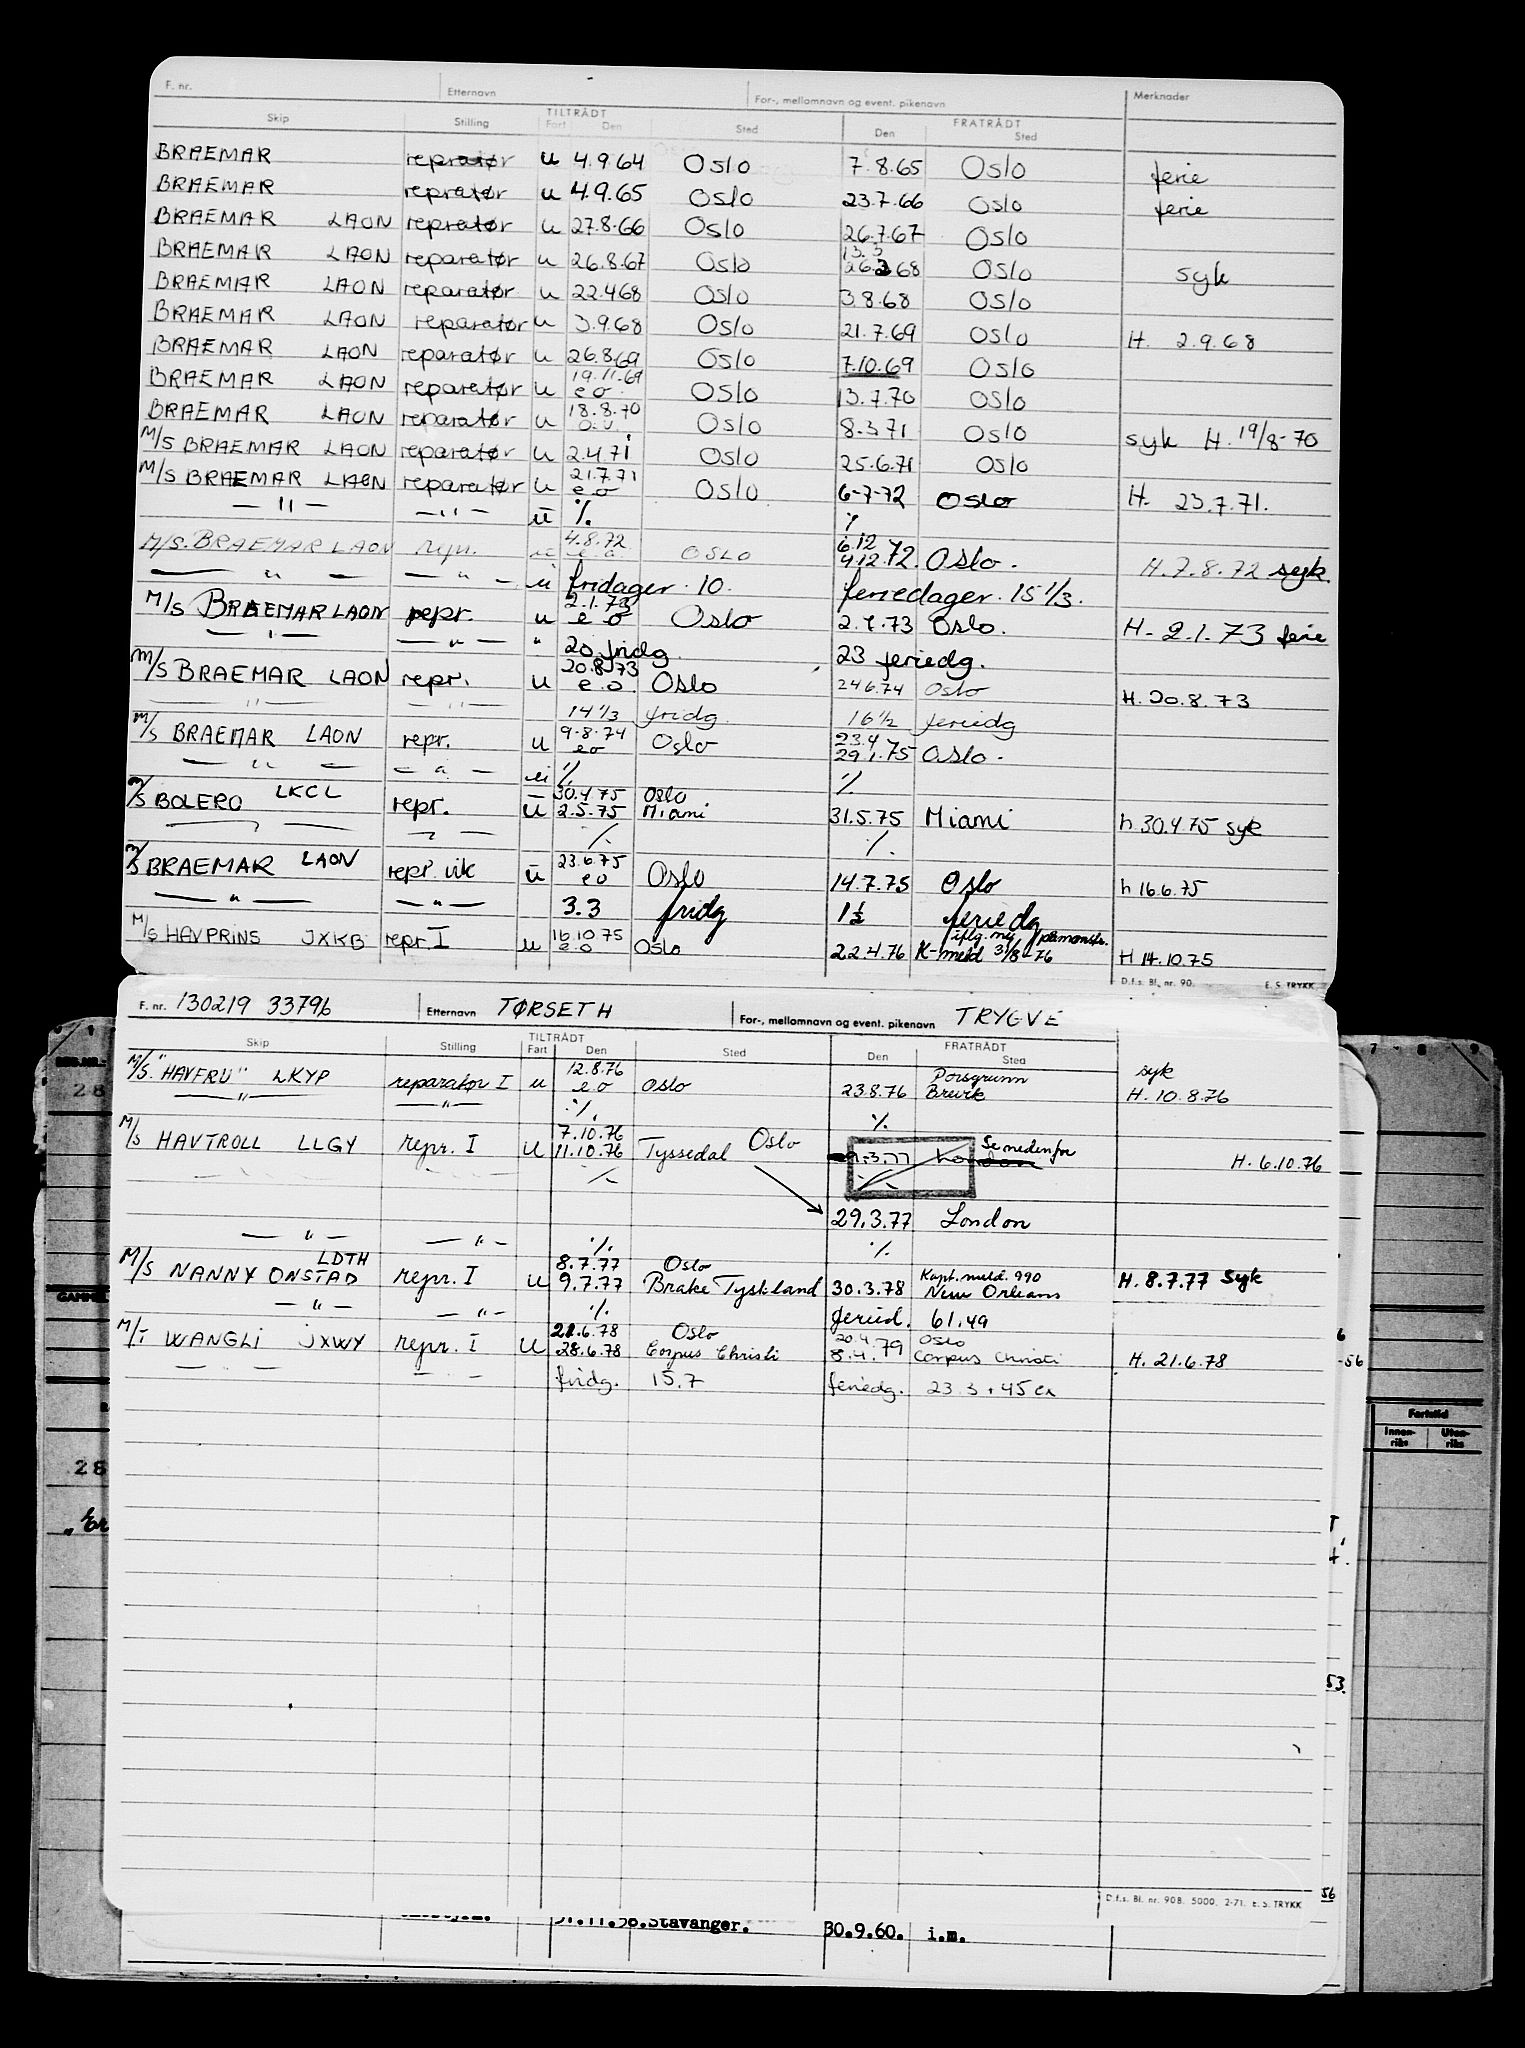 F. nr. Etternavn For-, mellomnavn og event. pikenavn Merknader
Skip Stilling TILTRÅDT Fart Den Sted FRATRÅDT Den Sted
BRAEMAR repratør u 4.9.64 Oslo 7.8.65 Oslo ferie
BRAEMAR repratør u 4.9.65 Oslo 23.7.66 Oslo ferie
BRAEMAR LAON repratør u 27.8.66 Oslo 26.7.67 Oslo
BRAEMAR LAON reparatør u 26.8.67 Oslo 13.3 26.3 68 Oslo syk
BRAEMAR LAON reparatør u 22.4 68 Oslo 3.8.68 Oslo
BRAEMAR LAON reparatør u 3.9.68 Oslo 21.7.69 Oslo H. 2.9.68
BRAEMAR LAON reparatør u 26.8.69 Oslo 7.10.69 Oslo
BRAEMAR LAON reparatør u 19.11.69 e o Oslo 13.7.70 Oslo
BRAEMAR LAON reparatør u 18.8.70 Oslo 8.3 71 Oslo syk H. 19/8-70
M/S BRAEMAR LAON reparatør u 2.4.71 Oslo 25.6.71 Oslo
M/S BRAEMAR LAON reparatør u 21.7.71 e o Oslo 6-7-72 Oslo H. 23.7.71.
— " — — " — u % %
M/S. BRAEMAR LAON repr. 4.8.72 e o OSLO 6.12 4.12.72. Oslo. H. 7.8.72 syk.
— " — — " — u fridager. 10. feriedager. 15 1/3.
M/S BRAEMAR LAON repr. u 2.1.73 e o Oslo 2.7.73 Oslo. H. 2.1.73 ferie
— " — — " — " 20 fridg. 23 feriedg.
M/S BRAEMAR LAON repr. u 20.8.73 e.o. Oslo 24.6.74 Oslo H. 20.8.73
" " 14 1/3 fridg. 16 1/2 feriedg
M/S BRAEMAR LAON repr. u 9.8.74 e o Oslo 23.4 29.1.75 Oslo.
— " — — " — u % %
M/S BOLERO LKCL repr. u 30.4.75 Oslo 2.5.75 Miami 31.5.75 Miami h 30.4.75 syk
— " — — " — % %
M/S BRAEMAR LAON repr. vik u 23.6.75 e o Oslo 14.7.75 Oslo h 16.6.75
— " — — " — 3.3 fridg 1 1/2 feriedg
M/S HAVPRINS JXKB repr. I u 16.10.75 e.o Oslo 22.4.76 K-meld 3/8-76 iflg. H 14.10.75
D.f.s. Bl. nr. 90. E. S. TRYKK.
F. nr. 130219 33796 Etternavn TØRSETH For-, mellomnavn og event. pikenavn TRYGVE
Skip Stilling TILTRÅDT Fart Den Sted FRATRÅDT Den Sted
M/S. "HAVFRU" LKYP reparatør I u 12.8.76 e o Oslo 23.8.76 Porsgrunn Brevik syk H. 10.8.76
— " — — " — % %
M/S HAVTROLL LLGY repr. I u 7.10.76 Oslo 11.10.76 Tyssedal 9.3.77 London Se nedenfor H. 6.10.76
%
29.3.77 London
— " — — " — % %
M/S NANNY ONSTAD LDTH repr. I u 8.7.77 Oslo 9.7.77 Brake Tyskland 30.3.78 Kapt. meld. 990 New Orleans H. 8.7.77 Syk
— " — — " — % feried. 61.49
M/T WANGLI JXWY repr. I u 21.6.78 Oslo 28.6.78 Corpus Christi 20.4 8.4.79 Oslo Corpus Christi H. 21.6.78
fridg. 15.7 feriedg. 23.3 + 45 ex
D.f.s. Bl. nr. 90B. 5000. 2-71. E. S. TRYKK
Stavanger. 30.9.60. i.m.
28
GAMMEL
28
„Er
7 - 8 - 9
56
Fartstid
Innenriks Utenriks
53.
56